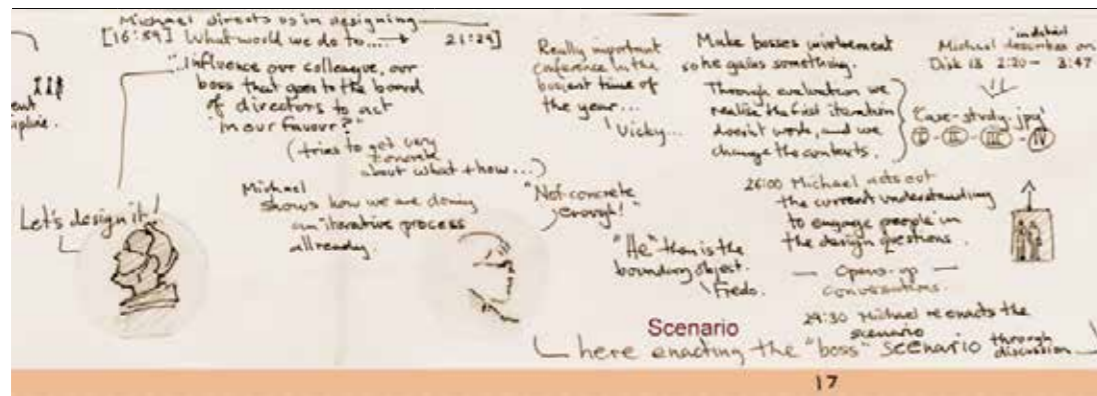 Michael directs us in designing
[16:59] What would we do to.... → 21:29]
"Influence our colleague, our
boss that goes to the board
of directors to act
in our favour?"
(tries to get very
concrete
about what + how...)
Let's design it!
Michael
shows how we are doing
an iterative process
allready.
Really important
conference in the
busiest time of
the year...
Vicky...
"Not concrete
enough!"
"He" then is the
boundary object.
Fredo.
Make bosses involvement
so he gains something.
Through evaluation we
realise the first iteration
doesn't work, and we
change the contexts.
in detail
Michael describes on
Disk 13 2:20 - 3:47
'Case-study.jpg'
I - II - III - IV
26:00 Michael acts out
the current understanding
to engage people in
the design questions.
— Opens-up —
conversations.
29:30 Michael re enacts the
scenario
through
discussion
Scenario
here enacting the "boss" scenario
17